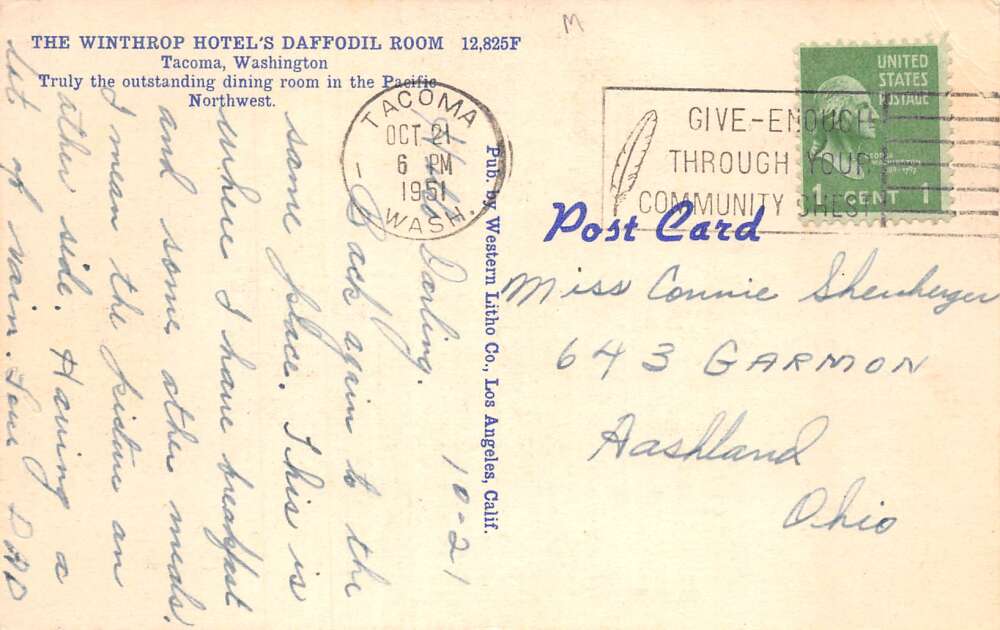 M
THE WINTHROP HOTEL'S DAFFODIL ROOM 12,825F
Tacoma, Washington
Truly the outstanding dining room in the Pacific
Northwest.
TACOMA
OCT 21
6 PM
1951
WASH.
GIVE-ENOUGH
THROUGH YOUR
COMMUNITY CHEST
UNITED
STATES
POSTAGE
GEORGE
WASHINGTON
1 CENT 1
Post Card
Pub. by Western Litho Co., Los Angeles, Calif.
10-21
Hello Darling.
Back again to the
same place. This is
where I have breakfast
and some other meals.
I mean the picture on
other side. Having a
lot of rain. Love DAD
Miss Connie Shenberger
643 GARMON
Aashland
Ohio